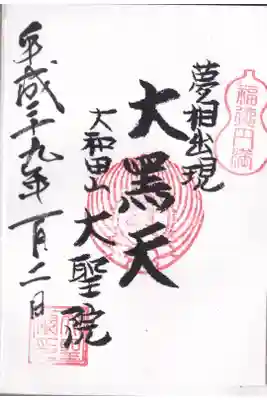 福徳円満
夢相出現
大黑天
大和田山
大聖院
平成二十九年一月二日